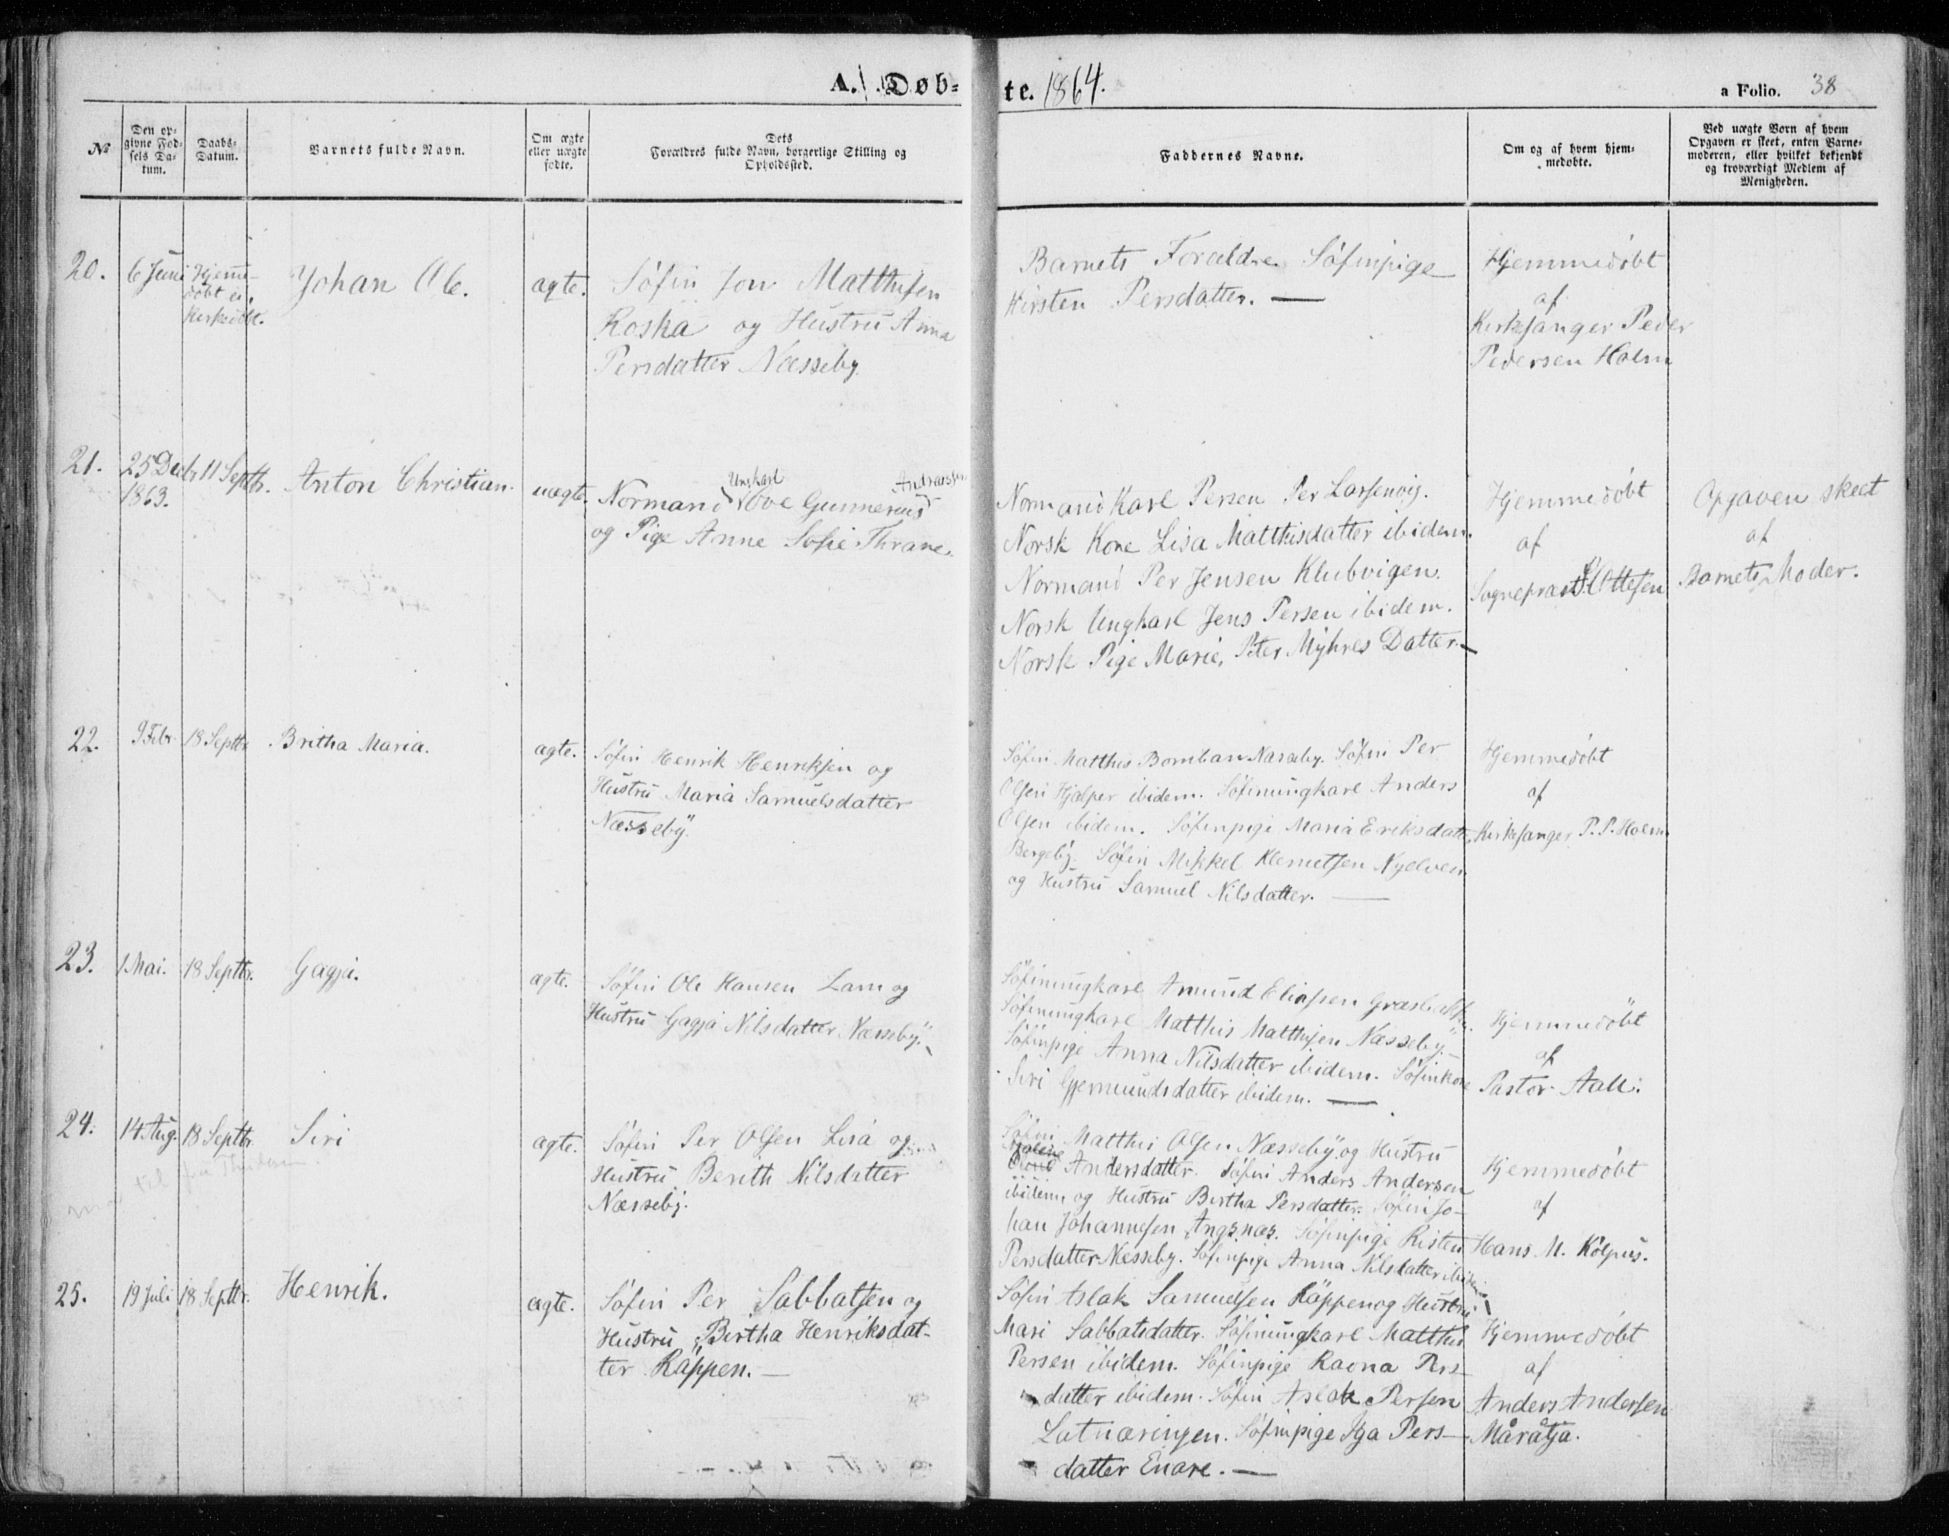 A. Døb-te. 1864. a Folio. 38
№
Den op-
givne Fød-
sels Da-
tum.
Daabs-
Datum.
Barnets fulde Navn.
Om ægte
eller uægte
fødte.
Dets
Forældres fulde Navn, borgerlige Stilling og
Opholdssted.
Faddernes Navne.
Om og af hvem hjem-
medøbte.
Ved uægte Børn af hvem
Opgaven er skeet, enten Barne-
moderen, eller hvilket bekjendt
og troværdigt Medlem af
Menigheden.
20.
6 Juni
Hjemme-
døbt ei
kirkedøbt.
Johan Ole.
ægte.
Søfin Jon Matthisen
Roska og Hustru Anna
Persdatter Næsseby.
Barnets Forældre Søfinpige
Kirsten Persdatter. —
Hjemmedøbt
af
Kirkesanger Peder
Pedersen Holm
21.
25 Decbr
1863.
11 Septbr.
Anton Christian.
uægte.
Normand Ungkarl Ove Gunnerius Andreassen
og Pige Anne Sofie Thrane.
Normand Karl Persen Per Larsenvig.
Norsk Kone Lisa Matthisdatter ibidem.
Normand Per Jensen Klubvigen.
Norsk Ungkarl Jens Persen ibidem.
Norsk Pige Marie, Peter Myhres Datter. —
Hjemmedøbt
af
Sognepræst Ottesen
Opgaven skeet
af
Barnets Moder.
22.
9 Febr.
18 Septbr.
Britha Maria.
ægte.
Søfin Henrik Henriksen og
Hustru Maria Samuelsdatter
Næsseby.
Søfin Matthis Bomban Næsseby. Søfin Per
Olsen Hjelper ibidem. Søfinungkarl Anders
Olsen ibidem. Søfinpige Maria Eriksdatter
Bergeby. Søfin Mikkel Klemetsen Nyelven
og Hustru Samuel Nilsdatter. —
Hjemmedøbt
af
Kirkesanger P. P. Holm
23.
1 Mai.
18 Septbr.
Gagja.
ægte.
Søfin Ole Hansen Lam og
Hustru Gagja Nilsdatter Næsseby.
Søfinungkarl Amund Eliasen Græsbakken.
Søfinungkarl Matthis Matthisen Næsseby.
Søfinpige Anna Nilsdatter ibidem. Søfinkone
Siri Gjermundsdatter ibidem. —
Hjemmedøbt
af
Pastor Aall.
24.
14 Aug.
18 Septbr.
Siri
ægte.
Søfin Per Olsen Lisa og
Hustru Berith Nilsdatter
Næsseby.
Søfin Matthis Olsen Næsseby og Hustru
Andersdatter. Søfin Anders Andersen
ibidem og Hustru Birtha Persdatter. Søfin Jo-
han Johannesen Angsnæs. Søfinpige Risten
Persdatter Næsseby. Søfinpige Anna Nilsdatter ibidem
Hjemmedøbt
af
Hans M. Kolpus.
25.
19 Juli
18 Septbr.
Henrik.
ægte.
Søfin Per Sabbatsen og
Hustru Birtha Henriksdat-
ter Kåppen. —
Søfin Aslak Samuelsen Kåppen og Hustru
Mari Sabbatsdatter. Søfinungkarl Matthis
Persen ibidem. Søfinpige Ravna Pers-
datter ibidem. Søfin Aslak Persen
Latnæringen. Søfinpige Aga Pers-
datter Enare. —
Hjemmedøbt
af
Anders Andersen
Måråtja.